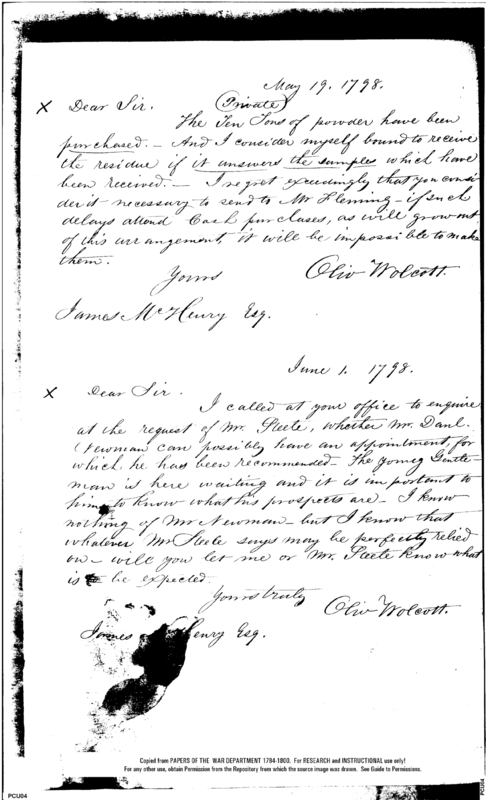 May 19. 1798.
X Dear Sir. (Private)
The Ten Tons of powder have been
purchased. - And I consider myself bound to receive
the residue if it answers the samples which have
been received. - I regret exceedingly that you consi-
der it necessary to send to Mr Fleming - if such
delays attend Cash purchases, as will grow out
of this arrangement, it will be impossible to make
them.
Yours
Oliv Wolcott.
James McHenry Esq.
June 1. 1798.
X Dear Sir.
I called at your office to enquire
at the request of Mr. Steele, whether Mr. Danl.
Newman can possibly have an appointment, for
which he has been recommended - The young Gentle-
man is here waiting and it is important to
him to know what his prospects are - I know
nothing of Mr Newman - but I know that
whatever Mr Steele says may be perfectly relied
on - will you let me or Mr. Steele know what
is to be expected
Yours truly
Oliv Wolcott.
James Henry Esq.
Copied from PAPERS OF THE WAR DEPARTMENT 1784-1800. For RESEARCH and INSTRUCTIONAL use only!
For any other use, obtain Permission from the Repository from which the source image was drawn. See Guide to Permissions.
PCU04